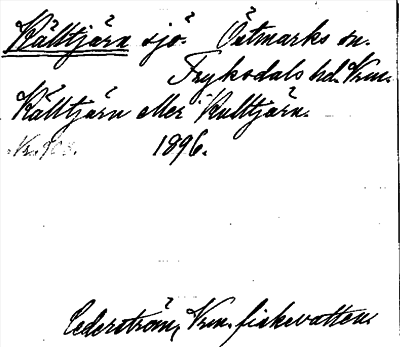 Källtjärn sjö. Östmarks sn.
Fryksdals hd. Vrm.
Källtjärn eller Kulltjärn.
1896.
Cederström, Vrm. fiskevatten.